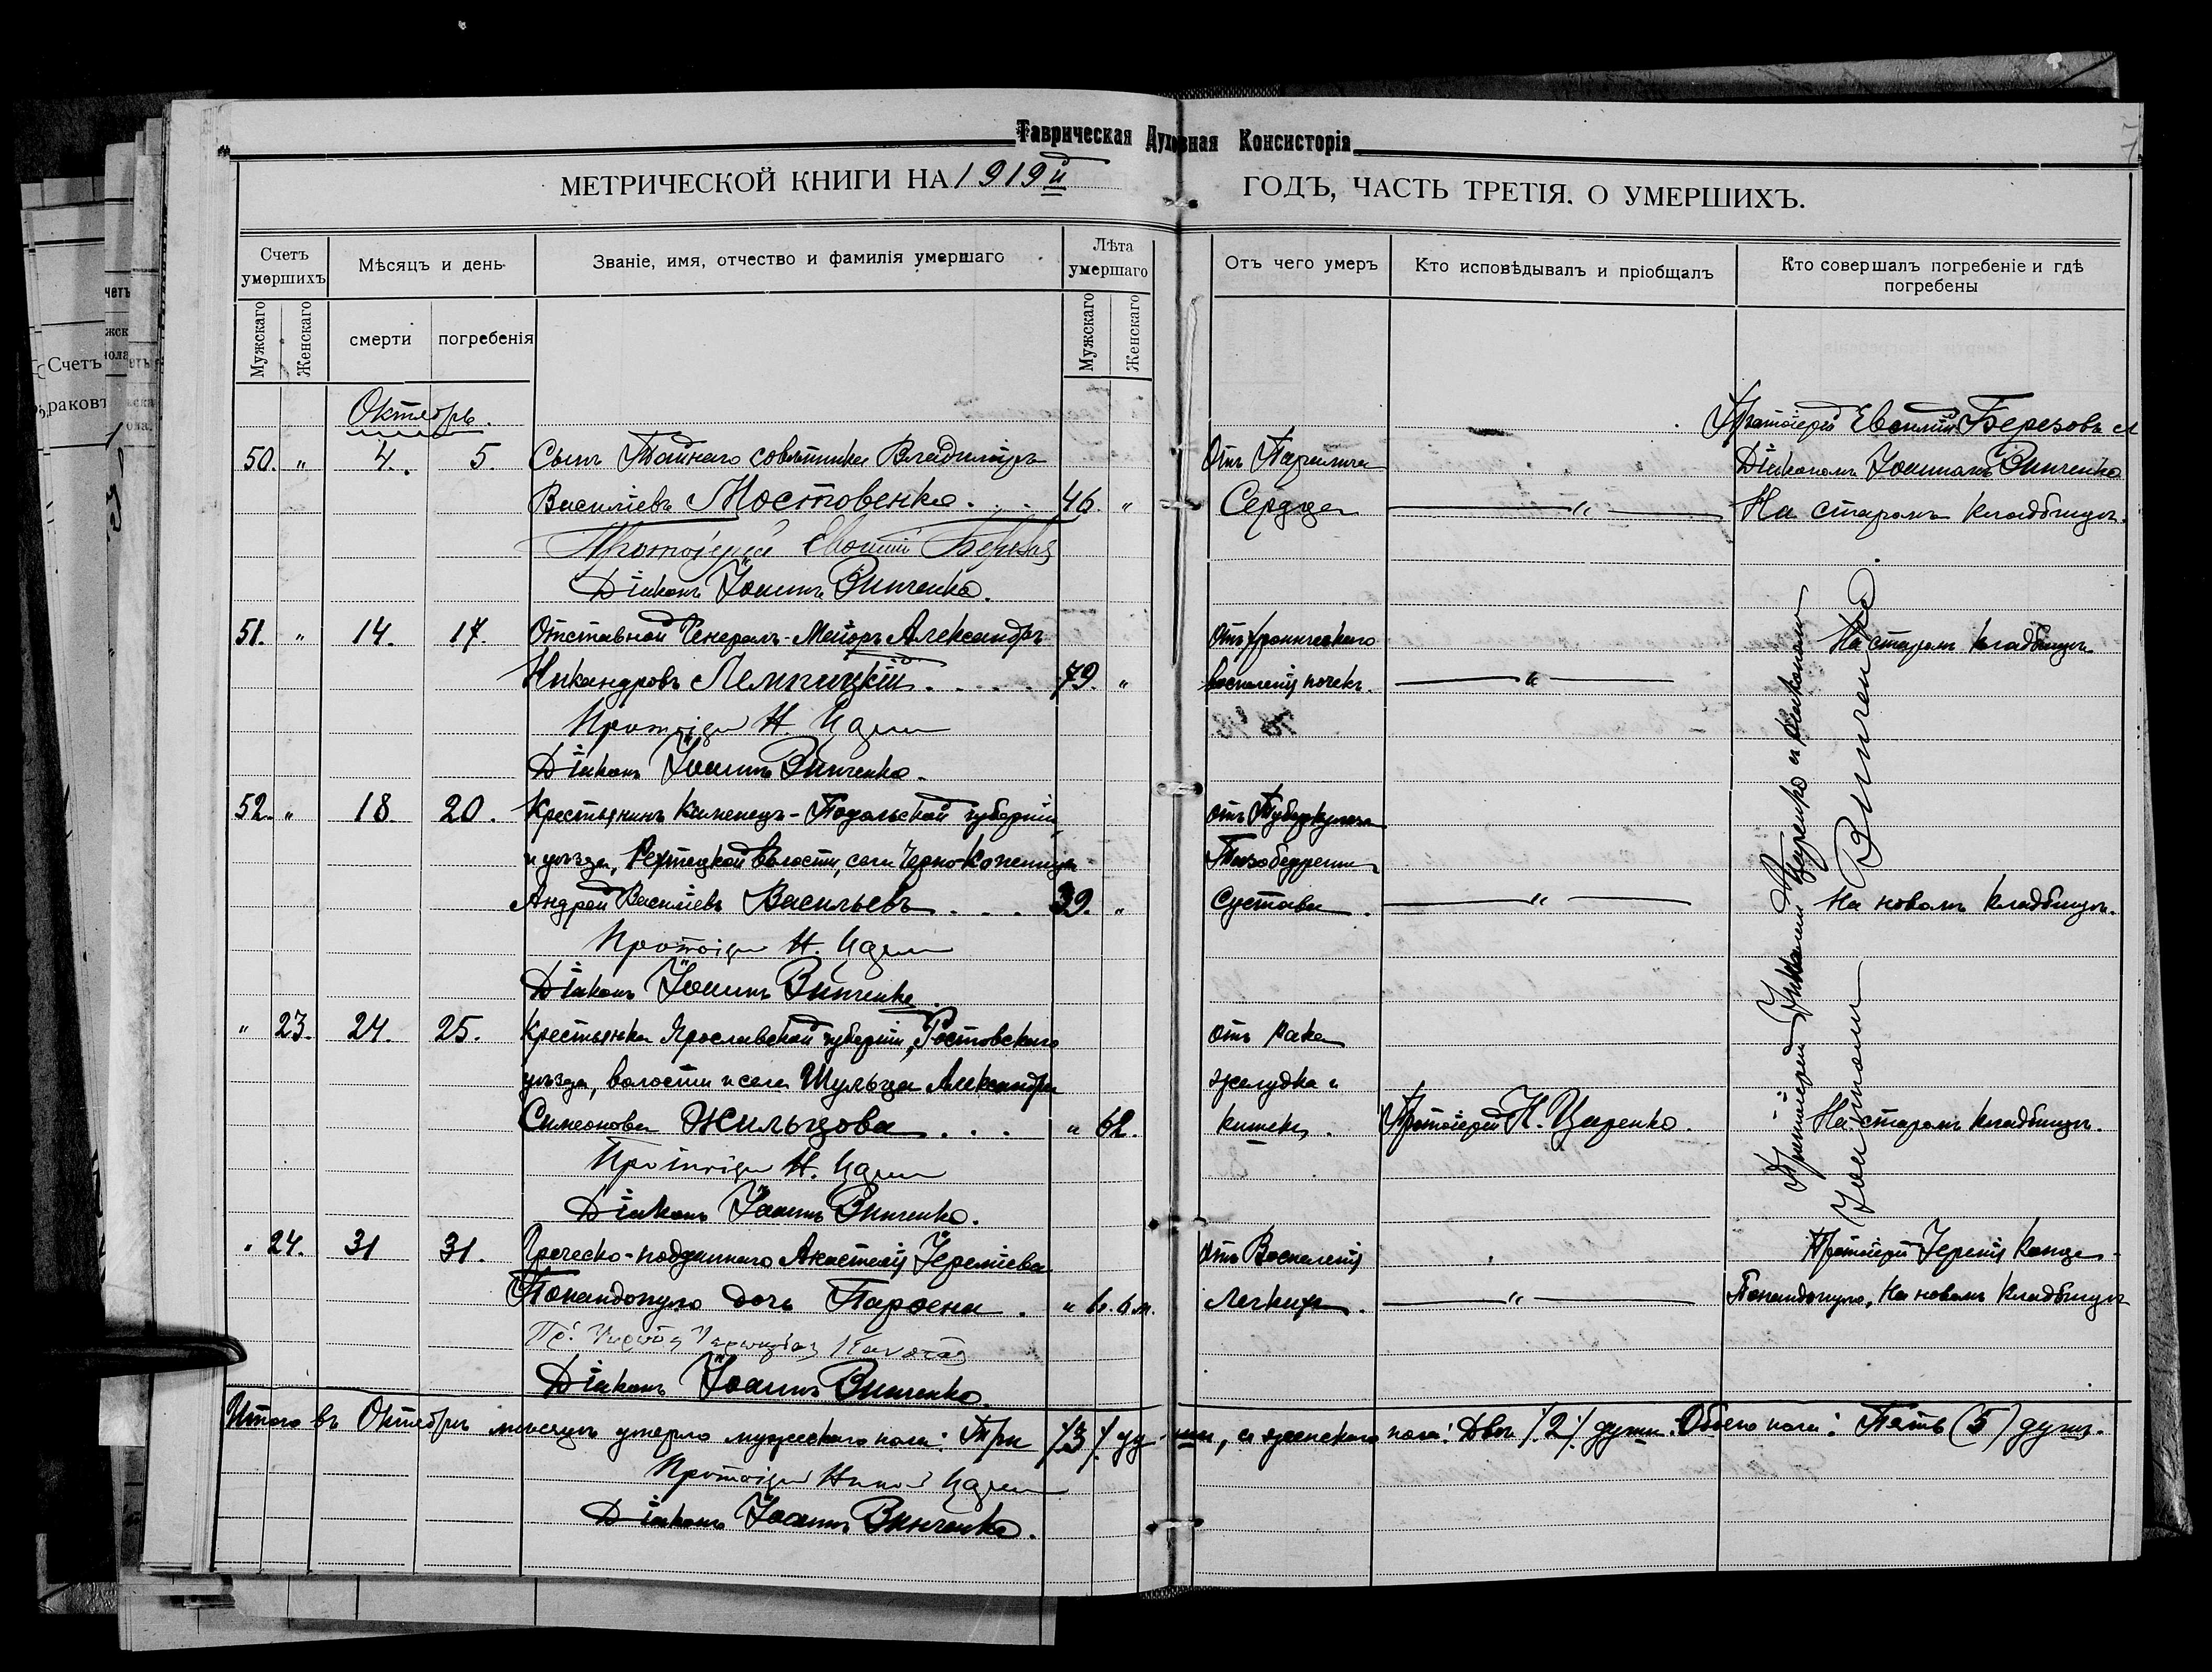 Таврическая Духовная Консисторія
МЕТРИЧЕСКОЙ КНИГИ НА 1919й ГОДЪ, ЧАСТЬ ТРЕТІЯ. О УМЕРШИХЪ.
7
Счетъ умершихъ
Мѣсяцъ и день
Званіе, имя, отчество и фамилія умершаго
Лѣта умершаго
Отъ чего умеръ
Кто исповѣдывалъ и пріобщалъ
Кто совершалъ погребеніе и гдѣ погребены
Мужскаго
Женскаго
смерти
погребенія
Мужскаго
Женскаго
Октябрь.
50. " 4. 5. Сынъ Тайнаго совѣтника Владиміръ
Василіевъ Мостовенко . . . 46. "
Отъ Паралича
Сердца
"
Протоіерей Евѳимій Березовъ
Діакономъ Іоанномъ Винченко
На старомъ кладбищѣ.
Протоіерей Евѳимій Березовъ
Діаконъ Іоаннъ Винченко.
51. " 14. 17. Отставной Генералъ-Маіоръ Александръ
Никандровъ Лемпицкій . . . . . 79. "
Отъ хроническаго
воспаленія почекъ.
"
На старомъ кладбищѣ.
Н.
Діаконъ Іоаннъ Винченко.
52. " 18. 20. Крестьянинъ Каменецъ-Подольской губерніи
и уѣзда, волости, села
Андрей Василіевъ Васильевъ . . . 39. "
отъ Туберкулеза
Тазобедренн.
Сустава.
"
На новомъ кладбищѣ.
Н.
Діаконъ Іоаннъ Винченко.
" 23. 24. 25. Крестьянка Ярославской губерніи, Ростовскаго
уѣзда, волости и села Шульца Александра
Симеонова Жильцова . . . " 62.
отъ рака
желудка и
кишекъ.
Протоіерей Н. Царенко.
На старомъ кладбищѣ.
Н.
Діаконъ Іоаннъ Винченко.
Протоіерей Николай Царенко съ діакономъ
Іоанномъ Винченко.
" 24. 31 31. Греческо-подданнаго Іереміева
Попандопуло дочь Парѳена. " 6 м.
Отъ Воспаленія
Легкихъ.
"
Протоіерей Іеремія
Попандопуло, На новомъ кладбищѣ
Діаконъ Іоаннъ Винченко.
Итого въ Октябрѣ мѣсяцѣ умерло мужескаго пола: Три /3/ души, а женскаго пола: Двѣ /2/ души. Обоего пола: Пять (5) душъ.
Діаконъ Іоаннъ Винченко.